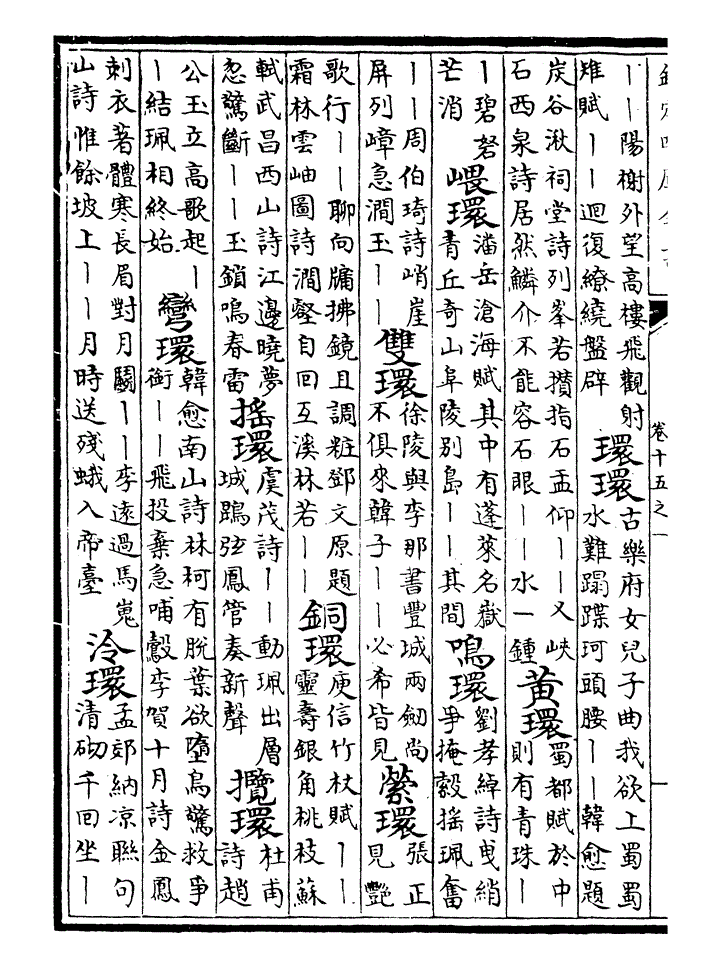 欽定四庫全書
卷十五之一
丨丨陽榭外望高樓飛觀射
雉賦丨丨迴復繚繞盤辟
環環
古樂府女兒子曲我欲上蜀蜀
水難蹋蹀珂頭腰丨丨韓愈題
炭谷湫祠堂詩列峯若攢指石盂仰丨丨又峽
石西泉詩居然鱗介不能容石眼丨丨水一鍾
黄環
蜀都賦於中
則有青珠丨
丨碧砮
芒消
嵔環
潘岳滄海賦其中有蓬萊名嶽
青丘奇山阜陵别島丨丨其間
鳴環
劉孝綽詩曵綃
爭掩縠摇珮奮
丨丨周伯琦詩峭崖
屏列嶂急澗玉丨丨
雙環
徐陵與李那書豐城兩劒尚
不俱來韓子丨丨必希皆見
縈環
張正
見艷
歌行丨丨聊向牖拂鏡且調粧鄧文原題
霜林雲岫圖詩澗壑自回互溪林若丨丨
銅環
庾信竹杖賦丨丨
靈壽銀角桃枝蘇
軾武昌西山詩江邊曉夢
忽驚斷丨丨玉鎖鳴春雷
摇環
虞茂詩丨丨動珮出層
城鵾弦鳳管奏新聲
攬環
杜甫
詩趙
公玉立高歌起丨
丨結珮相終始
彎環
韓愈南山詩林柯有脱葉欲墮鳥驚救爭
銜丨丨飛投棄急哺鷇李賀十月詩金鳳
刺衣著體寒長眉對月鬭丨丨李遠過馬嵬
山詩惟餘坡上丨丨月時送殘蛾入帝臺
泠環
孟郊納凉聯句
清砌千回坐丨